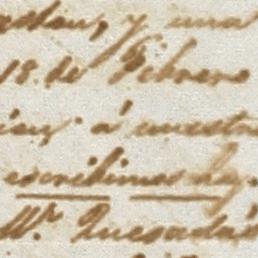 y una
18 de Febrero
á nuestr
escribimos hoy.
Mr. Quesada